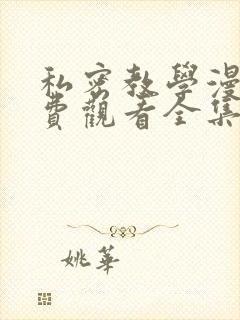 私密教學漫
費觀看全集
姚華